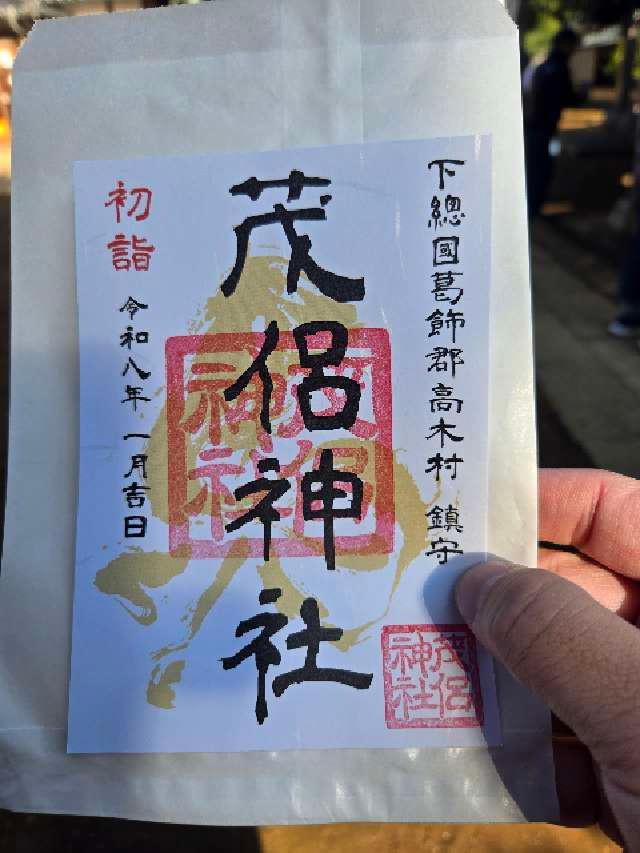 下總國葛飾郡高木村 鎮守
茂侶神社
初詣
令和八年 一月吉日
茂侶神社
茂侶神社